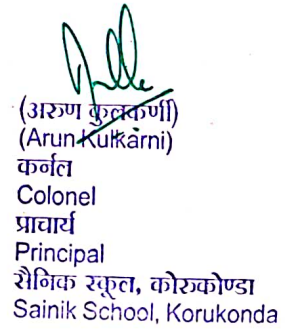 (अरुण कुलकर्णी)
(Arun Kulkarni)
कर्नल
Colonel
प्राचार्य
Principal
सैनिक स्कूल, कोरुकोण्डा
Sainik School, Korukonda